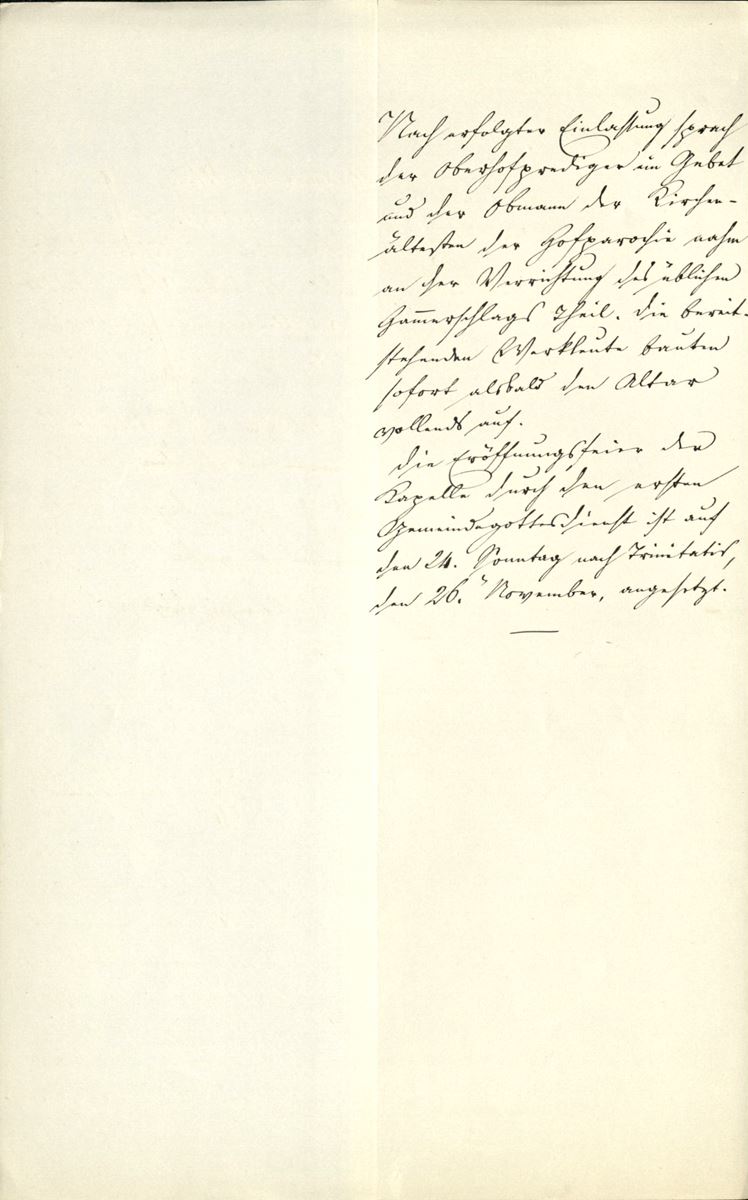 Nach erfolgter Einlassung sprach
der Oberhofprediger ein Gebet
und der Obmann der Kirchen-
ältesten der Hofparochie nahm
an der Verrichtung des üblichen
Ham̅erschlags Theil. Die bereit-
stehenden Werkleute bauten
sofort alsbald den Altar
vollends auf.
Die Eröffnungsfeier der
Kapelle durch den ersten
Gemeindegottesdienst ist auf
den 24. Sonntag nach Trinitatis,
den 26. November, angesetzt.